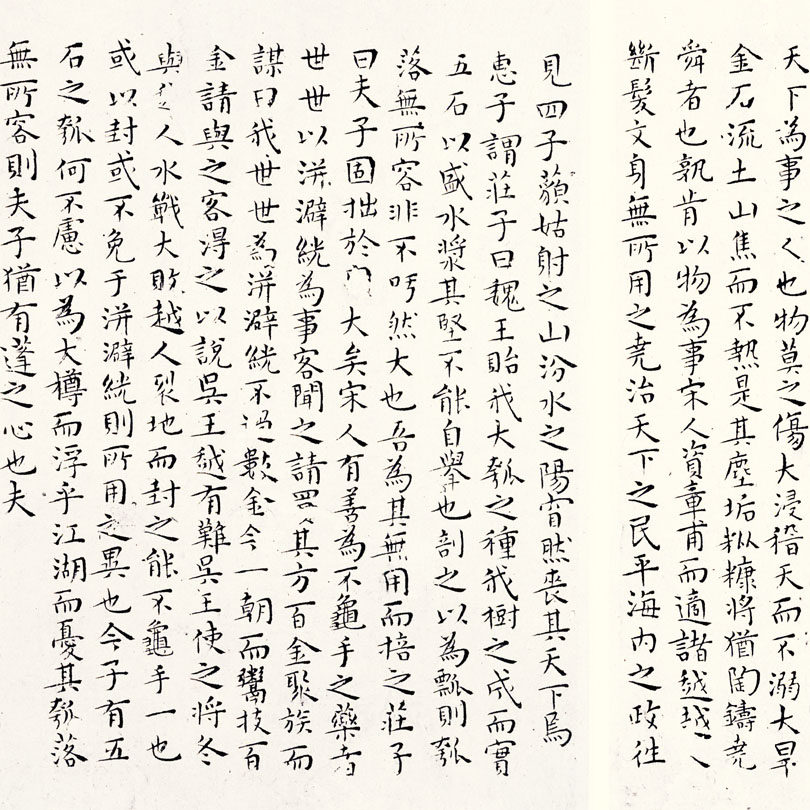 天下為事之人也物莫之傷大浸稽天而不溺大旱
金石流土山焦而不熱是其塵垢粃糠將猶陶鑄堯
舜者也孰肯以物為事宋人資章甫而適諸越越人
斷髮文身無所用之堯治天下之民平海內之政往
見四子藐姑射之山汾水之陽窅然喪其天下焉
惠子謂莊子曰魏王貽我大瓠之種我樹之成而實
五石以盛水漿其堅不能自舉也剖之以為瓢則瓠
落無所容非不呺然大也吾為其無用而掊之莊子
曰夫子固拙於大矣宋人有善為不龜手之藥者
世世以洴澼絖為事客聞之請買其方百金聚族而
謀曰我世世為洴澼絖不過數金今一朝而鬻技百
金請與之客得之以說吳王越有難吳王使之將冬
與人水戰大敗越人裂地而封之能不龜手一也
或以封或不免于洴澼絖則所用之異也今子有五
石之瓠何不慮以為大樽而浮乎江湖而憂其瓠落
無所容則夫子猶有蓬之心也夫